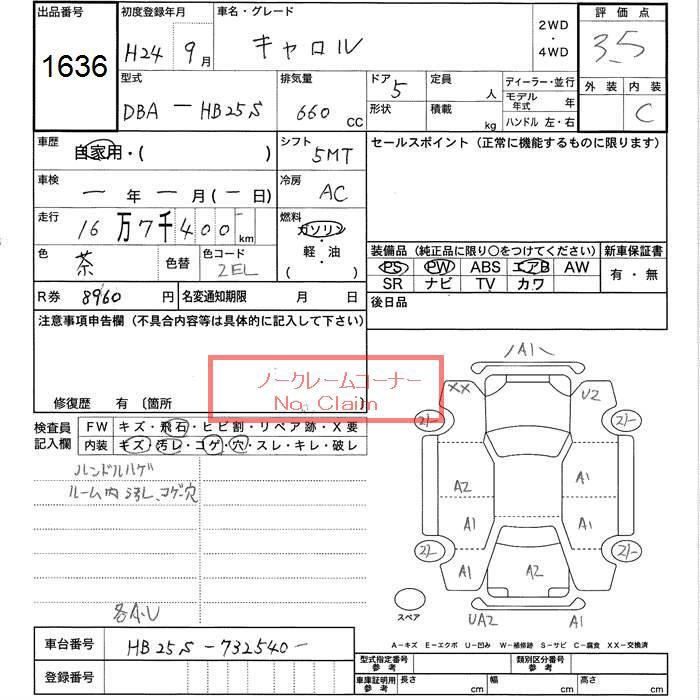 出品番号 初度登録年月 車名・グレード 2WD ・ 4WD 評価点
1636 H24 9月 キャロル 3.5
型式 排気量 ドア 5 定員 人 ディーラー・並行 外装 内装
DBA - HB25S 660 CC 形状 積載 kg モデル年式 年 C
ハンドル 左・右
車歴 自家用・( ) シフト 5MT セールスポイント (正常に機能するものに限ります)
車検 - 年 - 月 (- 日) 冷房 AC
走行 16万7千400 km 燃料 ガソリン・軽・油 ( )
色 茶 色替 色コード 2EL
装備品 (純正品に限り〇をつけてください) 新車保証書
PS PW ABS エアB AW 有・無
SR ナビ TV カワ
R券 8960 円 名変通知期限 月 日 後日品
注意事項申告欄 (不具合内容等は具体的に記入して下さい)
ノークレームコーナー
No Claim
修復歴 有 〔箇所
検査員記入欄 FW キズ・飛石・ヒビ割・リペア跡・X要
内装 キズ・汚レ・コゲ・穴・スレ・キレ・破レ
ハンドルハゲ
ルーム内汚レ、コゲ穴
各A・U
A1
XX U2
A2 A1
A1 A1
A1 A2
UA2 A1
スペア
A-キズ E-エクボ U-凹み W-補修跡 S-サビ C-腐食 XX-交換済
車台番号 HB25S-732540-
登録番号
型式指定番号 参考 類別区分番号 参考
車庫証明用 参考 長さ cm 幅 cm 高さ cm